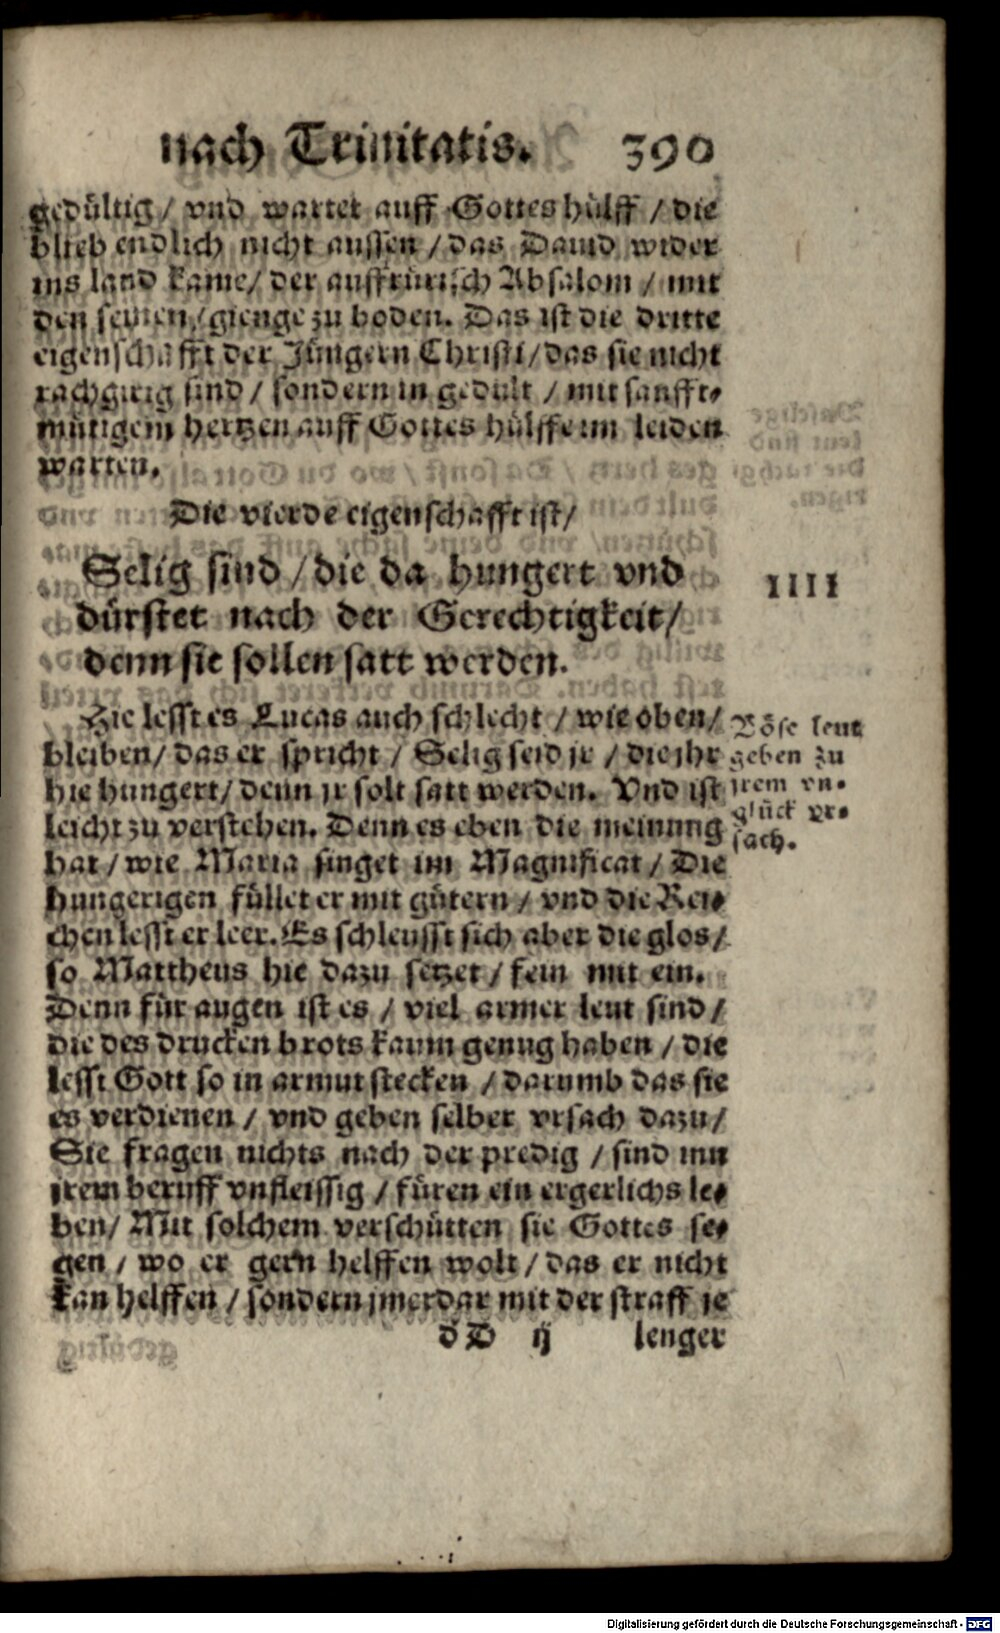 nach Trinitatis. 390
gedültig / vnd wartet auff Gottes hülff / die
blieb endlich nicht aussen / das Dauid wider
ins land kame / der auffrürisch Absalom / mit
den seinen / gienge zu boden. Das ist die dritte
eigenschafft der Jüngern Christi / das sie nicht
rachgirig sind / sondern in gedult / mit sanfft-
mütigem hertzen auff Gottes hülffe im leiden
warten.
Die vierde eigenschafft ist /
Selig sind / die da hungert vnd
dürstet nach der Gerechtigkeit /
denn sie sollen satt werden.
IIII
Hie lesst es Lucas auch schlecht / wie oben /
bleiben / das er spricht / Selig seid jr / die jhr
hie hungert / denn jr solt satt werden. Vnd ist
leicht zu verstehen. Denn es eben die meinung
hat / wie Maria singet im Magnificat / Die
hungerigen füllet er mit gütern / vnd die Rei-
chen lesst er leer. Es schleusst sich aber die glos /
so Mattheus hie dazu setzet / fein mit ein.
Denn für augen ist es / viel armer leut sind /
die des drucken brots kaum genug haben / die
lesst Gott so in armut stecken / darumb das sie
es verdienen / vnd geben selber vrsach dazu /
Sie fragen nichts nach der predig / sind inn
jrem beruff vnfleissig / füren ein ergerlichs le-
ben / Mit solchem verschütten sie Gottes se-
gen / wo er gern helffen wolt / das er nicht
kan helffen / sondern jmerdar mit der straff je
dD ij lenger
Böse leut
geben zu
jrem vn-
glück vr-
sach.
Digitalisierung gefördert durch die Deutsche Forschungsgemeinschaft - DFG